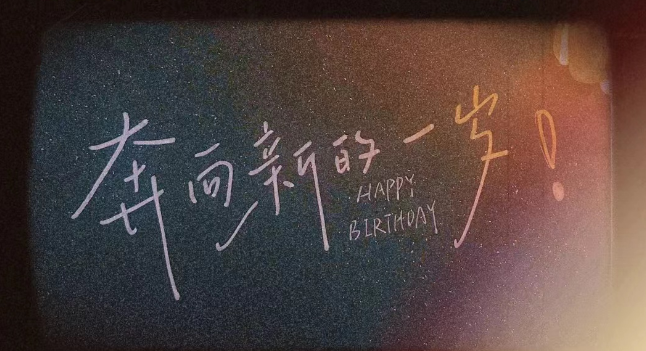 奔向新的一岁!
HAPPY
BIRTHDAY